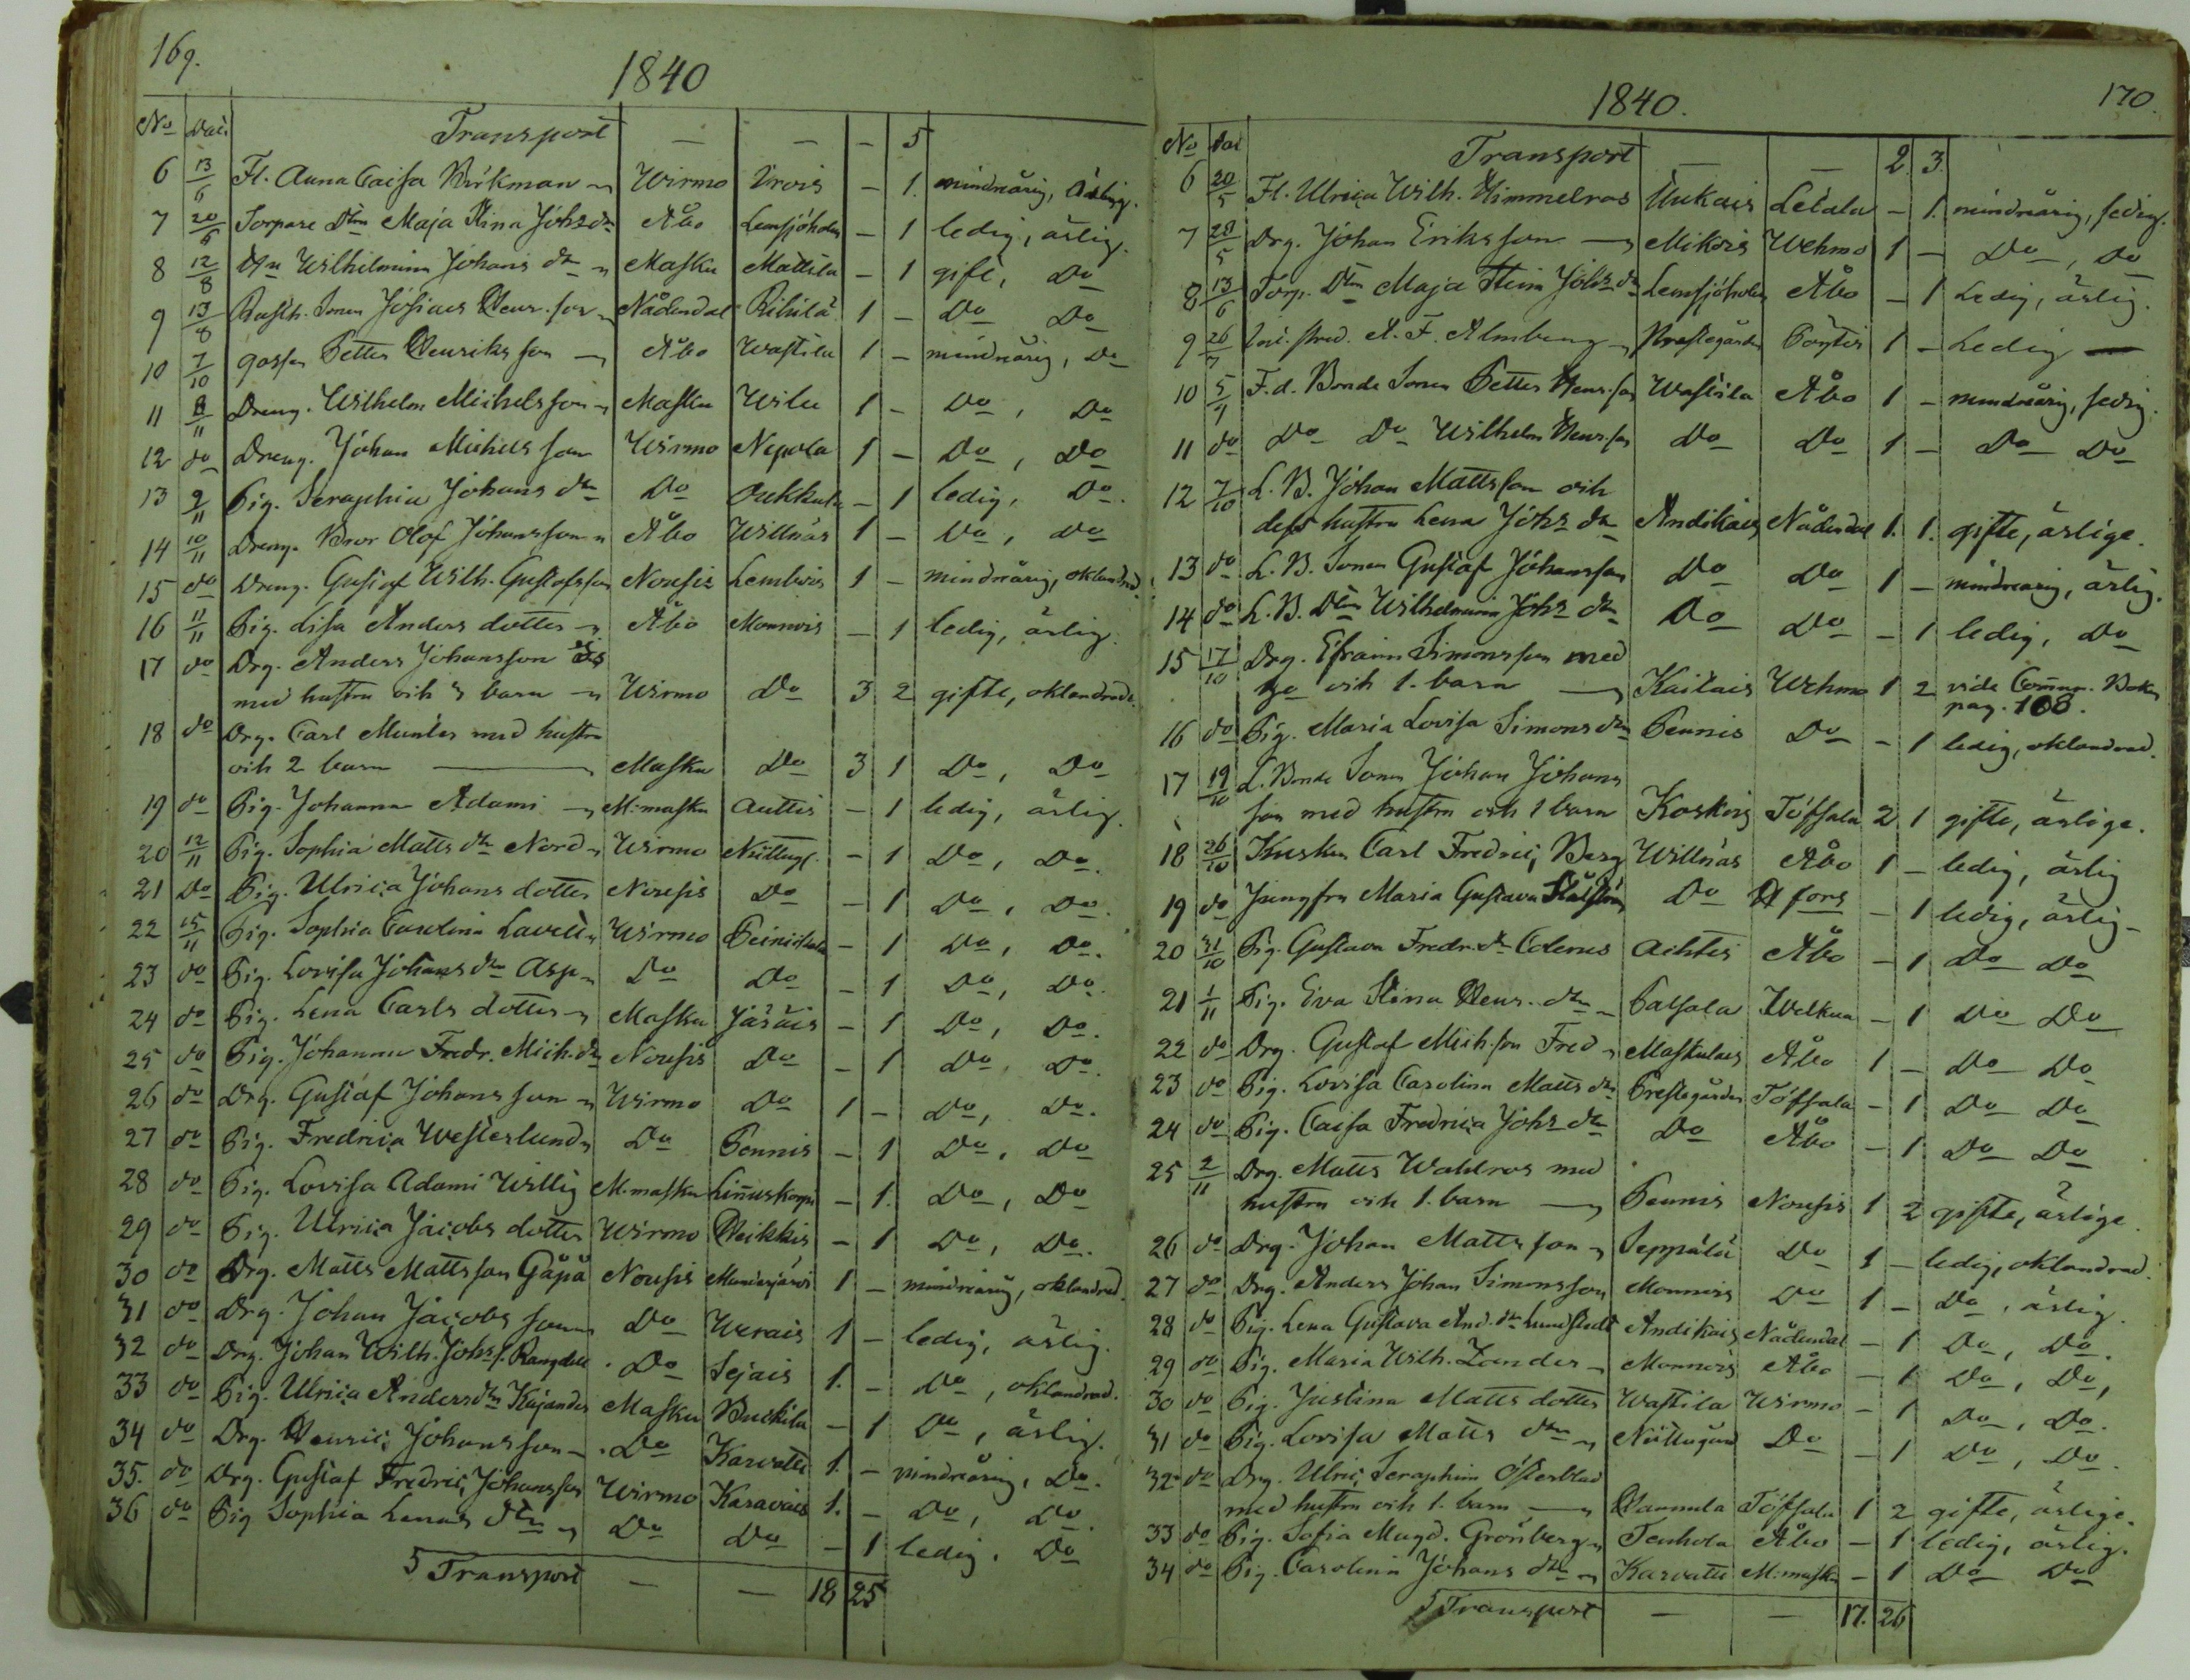 169.
1840
No Dat. Transport — — — 5
6 13/6 Fl. Anna Caisa Birkman Wirmo Urois — 1. mindreårig, ärlig.
7 20/6 Torpare Dtn Maja Stina Johsdr Åbo Lemsjöholm — 1 ledig, ärlig.
8 12/8 Wilhelmina Johans dr Masku Mattila — 1 gift, Do
9 13/8 Rusth. Sonen Josias Henr. son Nådendal Rihilä 1 — Do Do
10 7/10 gossen Petter Henriksson Åbo Wastila 1 — mindreårig, Do
11 8/11 Dreng. Wilhelm Michelsson Masku Wilu 1 — Do, Do
12 do Dreng. Johan Michelsson Wirmo Nepola 1 — Do, Do
13 9/11 Pig. Seraphia Johans dr Do Oukkula — 1 ledig, Do.
14 10/11 Dreng. Bror Olof Johansson Åbo Willnäs 1 — Do, Do
15 do Dreng. Gustaf Wilh. Gustafsson Nousis Lembois 1 — mindreårig, oklandrad.
16 11/11 Pig. Lisa Anders dotter Åbo Monnois — 1 ledig, ärlig.
17 do Drg. Anders Johansson
med hustru och 3 barn Wirmo Do 3 2 gifte, oklandrade.
18 do Drg. Carl Munter med hustru
och 2 barn Masku Do 3 1 Do, Do
19 do Pig. Johanna Adami M:masku Auttis — 1 ledig, ärlig.
20 12/11 Pig. Sophia Matts dr Nord Wirmo Nuttug. — 1 Do, Do.
21 Do Pig. Ulrica Johans dotter Nousis Do — 1 Do, Do.
22 15/11 Pig. Sophia Carolina Laveli Wirmo Peinistula — 1 Do, Do.
23 do Pig. Lovisa Johans dr Asp Do Do — 1 Do, Do.
24 do Pig. Lena Carls dotter Masku Jäsäis — 1 Do, Do.
25 do Pig. Johanna Fredr. Mich. dr Nousis Do — 1 Do, Do.
26 do Drg. Gustaf Johansson Wirmo Do 1 — Do, Do.
27 do Pig. Fredrica Westerlund Do Pennis — 1 Do, Do
28 do Pig. Lovisa Adami Willig M:masku Linnuskorpi — 1. Do, Do
29 do Pig. Ulrica Jacobs dotter Wirmo Heikkis — 1 Do, Do.
30 do Drg. Matts Mattsson Gåpå Nousis 1 — mindreårig, oklandrad.
31 do Drg. Johan Jacobsson Do Werais 1 — ledig, ärlig.
32 do Drg. Johan Wilh. Johss. Rangdell Do Sejais 1. — Do, oklandrad.
33 do Pig. Ulrica Andersdr Kajander Masku Buckila — 1 Do, ärlig.
34 do Drg. Henric Johansson Do Karvatti 1. — mindreårig, Do.
35. do Drg. Gustaf Fredric Johansson Wirmo Karavais 1. — Do, Do.
36 do Pig Sophia Lenas dtr Do Do — 1 ledig. Do
Transport — — 18 25
1840.
170.
No Dat Transport — — 2. 3.
6 20/5 Fl. Ulrica Wilh. Himmelros Unkais Letala — 1. mindreårig, sedig.
7 28/5 Drg. Johan Eriksson Mikois Wehmo 1 — Do, Do
8 13/6 Torp. Dtn Maja Stina Johs dr Lemsjöholm Åbo — 1 Ledig, ärlig.
9 26/7 A. F. Almberg Prestegården Pöytis 1 — Ledig —
10 5/9 F. d. Bonde Sonen Petter Henr. son Wastila Åbo 1 — mindreårig, sedig.
11 do Do Do Wilhelm Henr. son Do Do 1 — Do Do
12 7/10 L. B. Johan Mattsson och
dess hustru Lena Johs dr Andikais Nådendal 1. 1. gifte, ärlige.
13 do L. B. Sonen Gustaf Johansson Do Do 1 — mindreårig, ärlig.
14 do L. B. Dtn Wilhelmina Johs dr Do Do — 1 ledig, Do
15 17/10 Drg. Efraim Simonsson med
ho och 1. barn Kailais Wehmo 1 2 vide Comm. Boken
pag. 108.
16 do Pig. Maria Lovisa Simons dr Pennis Do — 1 ledig, oklandrad.
17 19/10 L. Bonde Sonen Johan Johans
son med hustru och 1 barn Koskois Töfsala 2 1 gifte, ärlige.
18 26/10 Kusken Carl Fredric Berg Willnäs Åbo 1 — ledig, ärlig
19 do Jungfru Maria Gustava Do H fors — 1 ledig, ärlig
20 31/10 Pig. Gustava Fredr. dr Colerus Achtis Åbo — 1 Do Do
21 1/11 Pig. Eva Stina Henr. dr Palsala Welkua — 1 Do Do
22 do Drg. Gustaf Mich. son Fred Maskulais Åbo 1 — Do Do
23 do Pig. Lovisa Carolina Matts dr Prestegården Töfsala — 1 Do Do
24 do Pig. Caisa Fredrica Johs dr Do Åbo — 1 Do Do
25 2/11 Drg. Matts Wahlros med
hustru och 1. barn Pennis Nousis 1 2 gifte, ärlige.
26 do Drg. Johan Mattsson Seppälä Do 1 — ledig, oklandrad.
27 do Drg. Anders Johan Simonsson Monnois Do 1 — Do, ärlig.
28 do Pig. Lena Gustava And. dr Lundstedt Andikais Nådendal — 1 Do, Do.
29 do Pig. Maria Wilh. Zander Monnois Åbo — 1 Do, Do,
30 do Pig. Justina Matts dotter Wastila Wirmo — 1 Do, Do.
31 do Pig. Lovisa Matts dr Nuttogård Do — 1 Do, Do.
32 do Drg. Ulric Seraphim Österblad
med hustru och 1. barn Hannula Töfsala 1 2 gifte, ärlige.
33 do Pig. Sofia Magd. Grönberg Tenhola Åbo — 1 ledig, ärlig.
34 do Pig. Carolina Johans dr Karvatti M:masku — 1 Do Do
Transport — — 17. 26